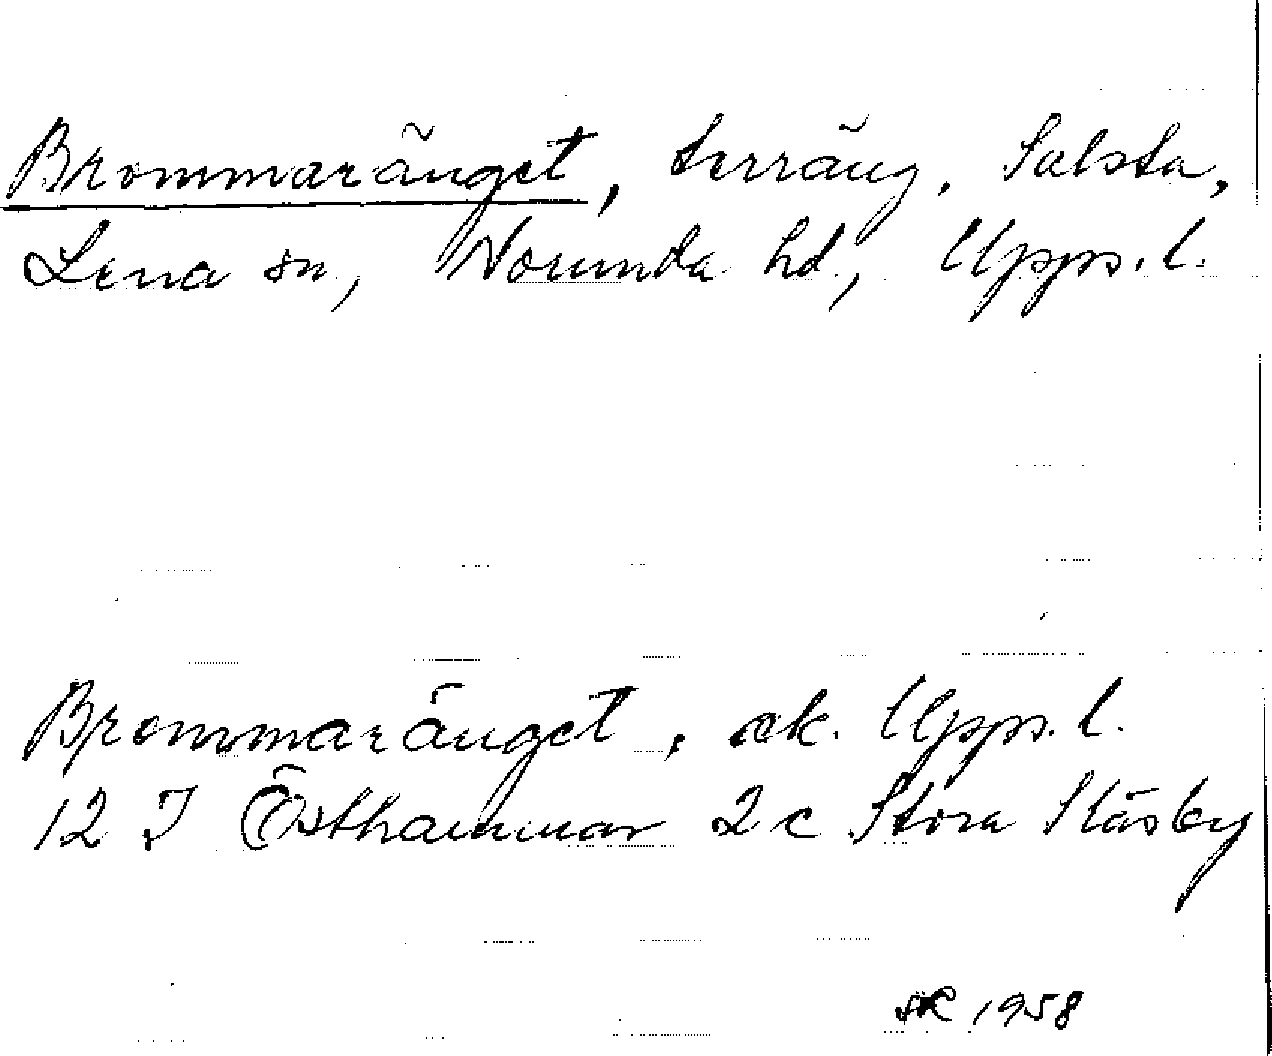 Brommaränget, terräng, Salsta,
Lena sn, Norunda hd, Upps. l.
Brommaränget, ek. Upps. l.
12 I Östhammar 2 c Stora Stäsby
1958